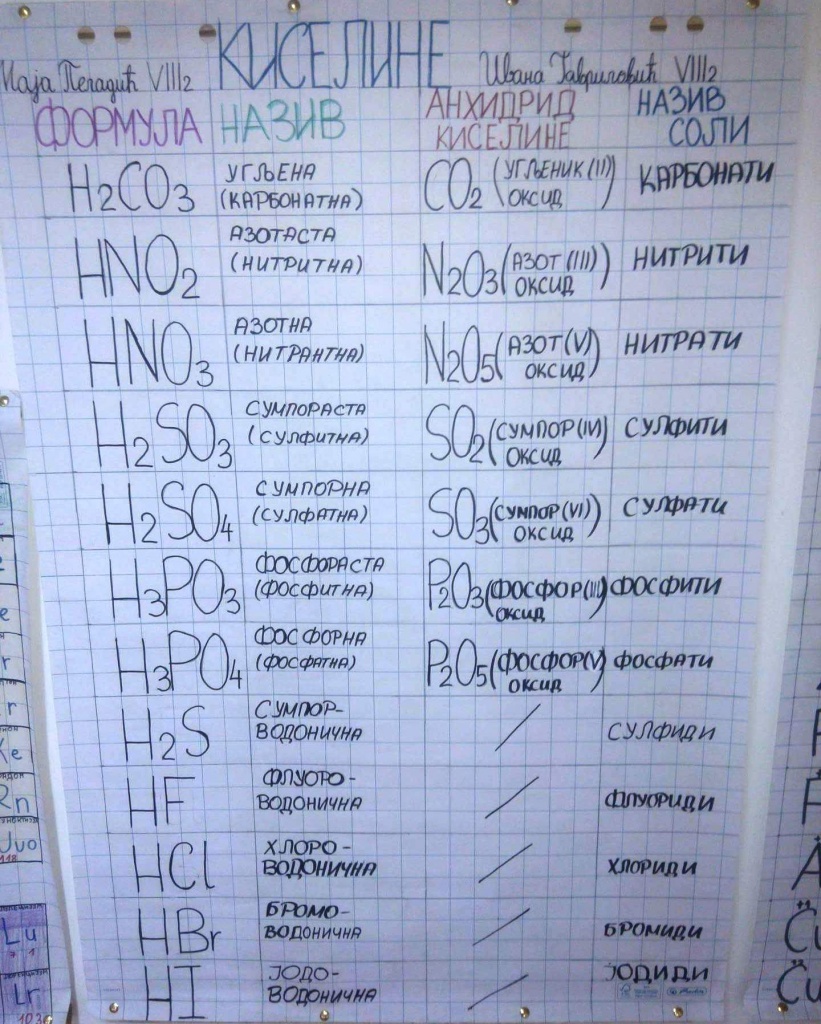 КИСЕЛИНЕ
Маја Пегадић VIII2 Ивана Гавриловић VIII2
ФОРМУЛА НАЗИВ АНХИДРИД КИСЕЛИНЕ НАЗИВ СОЛИ
H2CO3 УГЉЕНА (КАРБОНАТНА) CO2 (УГЉЕНИК (II) ОКСИД) КАРБОНАТИ
HNO2 АЗОТАСТА (НИТРИТНА) N2O3 (АЗОТ (III) ОКСИД) НИТРИТИ
HNO3 АЗОТНА (НИТРАНТНА) N2O5 (АЗОТ (V) ОКСИД) НИТРАТИ
H2SO3 СУМПОРАСТА (СУЛФИТНА) SO2 (СУМПОР (IV) ОКСИД) СУЛФИТИ
H2SO4 СУМПОРНА (СУЛФАТНА) SO3 (СУМПОР (VI) ОКСИД) СУЛФАТИ
H3PO3 ФОСФОРАСТА (ФОСФИТНА) P2O3 (ФОСФОР (III) ОКСИД) ФОСФИТИ
H3PO4 ФОСФОРНА (ФОСФАТНА) P2O5 (ФОСФОР (V) ОКСИД) ФОСФАТИ
H2S СУМПОР-ВОДОНИЧНА / СУЛФИДИ
HF ФЛУОРО-ВОДОНИЧНА / ФЛУОРИДИ
HCl ХЛОРО-ВОДОНИЧНА / ХЛОРИДИ
HBr БРОМО-ВОДОНИЧНА / БРОМИДИ
HI ЈОДО-ВОДОНИЧНА / ЈОДИДИ
Rn
Uuo
118
Lu
Lr
103